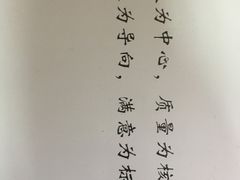 为中心，质量为核
为导向，满意为标